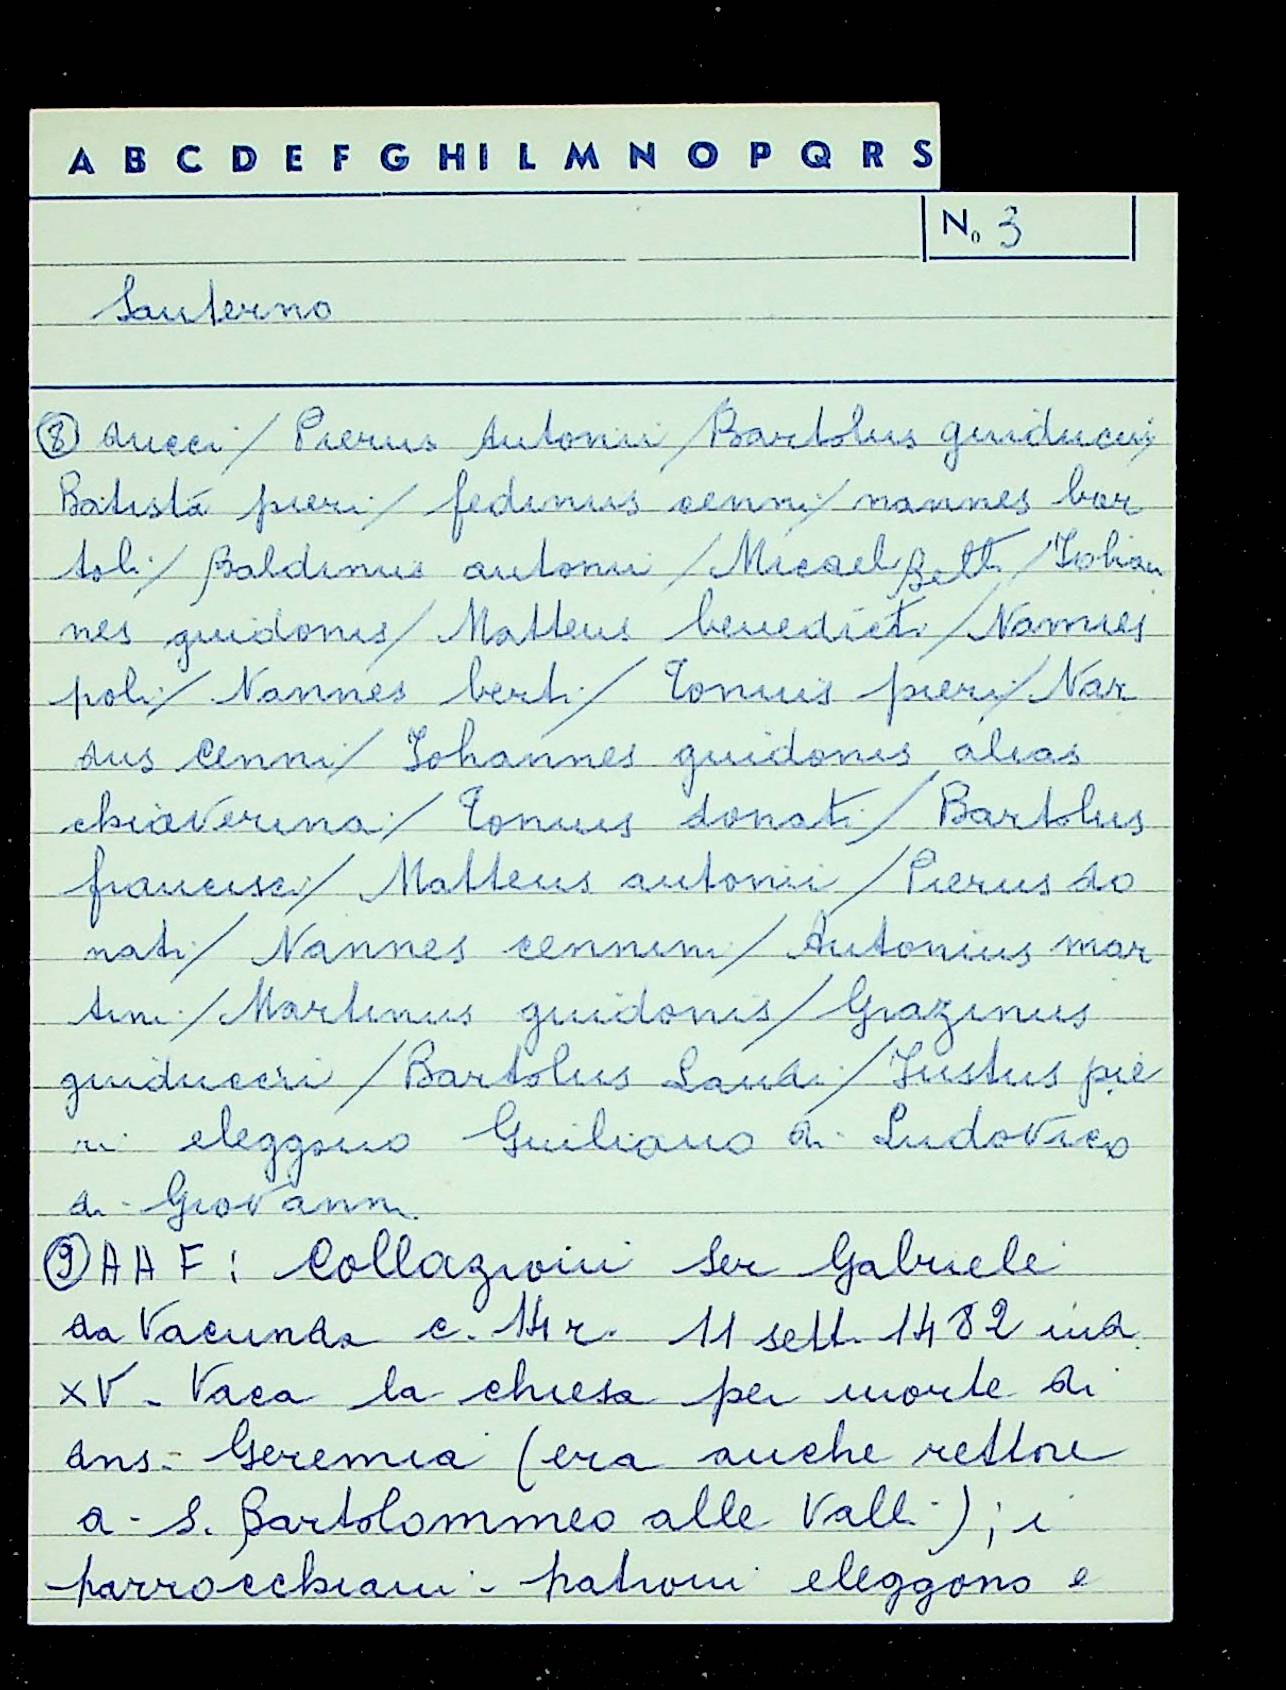 A B C D E F G H I L M N O P Q R S
No 3
Santerno
⑧ ducci / Pierus Antonii / Bartolus guiducci /
Batista pieri / fedinus cenni / nannes bar
toli / Baldinus antonii / Micael Betti / Iohan
nes guidonis / Matteus benedicti / Nannes
poli / Nannes berti / Tonius pieri / Nar
dus Cenni / Iohannes guidonis alias
chiaverina / Tonius donati / Bartolus
francisci / Matteus antonii / Pierus do
nati / Nannes cennini / Antonius mar
tini / Martinus guidonis / Grazinus
guiduccii / Bartolus Landi / Iustus pie
ri eleggono Guiliano di Ludovico
di Giovanni
⑨ A A F : Collazioni Ser Gabriele
da Vacunda c. 14 r. 11 sett. 1482 ind
XV - Vaca la chiesa per morte di
dns. Geremia (era anche rettore
a S. Bartolommeo alle Valli) ; i
parrocchiani - patroni eleggono e